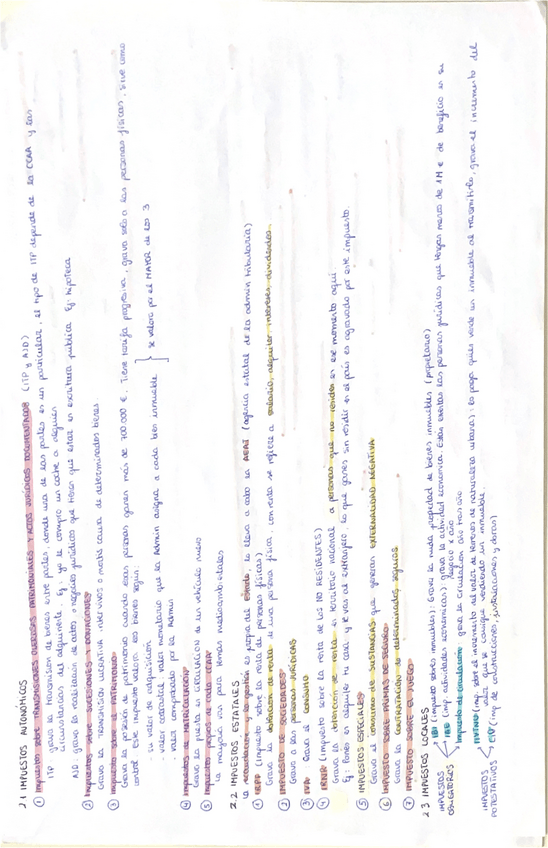 2.1 IMPUESTOS AUTONÓMICOS
① Impuesto sobre TRANSMISIONES ONEROSAS PATRIMONIALES Y ACTOS JURÍDICOS DOCUMENTADOS (ITP y AJD)
ITP grava la transmisión de bienes entre partes, donde una de las partes es un particular, el tipo de ITP depende de la CCAA y las
circunstancias del adquirente. Ej: yo le compro un coche a alguien
AJD: grava la realización de actos o negocios jurídicos que tienen que estar en escritura pública Ej: hipoteca
② Impuestos sobre SUCESIONES Y DONACIONES
Grava la TRANSMISIÓN LUCRATIVA intervivos o mortis causa de determinados bienes
③ Impuesto sobre el PATRIMONIO
Grava posesión de patrimonio cuando esas personas ganen más de 700.000 €. Tiene tarifa progresiva, grava solo a las personas físicas, sirve como
control. Este impuesto valora los bienes según:
· su valor de adquisición
· valor catastral: valor monetario que la Admin asigna a cada bien inmueble } se valora por el MAYOR de los 3
· valor comprobado por la Admin
④ Impuestos de MATRICULACIÓN
Grava la puesta en circulación de un vehículo nuevo
⑤ Impuestos propios de cada CCAA
la mayoría son para temas medioambientales
2.2 IMPUESTOS ESTATALES
La recaudación y la gestión es propia del Estado, lo lleva a cabo la AEAT (agencia estatal de la admin tributaria)
① IRPF (impuesto sobre la renta de personas físicas)
Grava la obtención de renta de una persona física, con renta se refiere a salario, alquiler, intereses, dividendos.
② IMPUESTO DE SOCIEDADES
Grava a las PERSONAS JURÍDICAS
③ IVA: Grava el CONSUMO
④ IRNR (impuesto sobre la renta de los NO RESIDENTES)
Grava la obtención de renta en territorio nacional a personas que no residen en ese momento aquí
Ej: Pones en alquiler tu casa y te vas al extranjero, lo que ganes sin residir en el país es gravado por este impuesto.
⑤ IMPUESTOS ESPECIALES
Grava el consumo de SUSTANCIAS que generan EXTERNALIDAD NEGATIVA
⑥ IMPUESTO SOBRE PRIMAS DE SEGURO
Grava la CONTRATACIÓN de determinados seguros
⑦ IMPUESTO SOBRE EL JUEGO
2.3 IMPUESTOS LOCALES
IMPUESTOS OBLIGATORIOS
IBI (impuesto sobre bienes inmuebles): Grava la nuda propiedad de bienes inmuebles (propietario)
IAE (imp actividades económicas) grava la actividad económica. Están exentas las personas jurídicas que tengan menos de 1M € de beneficio en su
negocio x año
Impuesto de circulación: grava la circulación año tras año
IMPUESTOS POTESTATIVOS
IIVTNU (imp sobre el incremento del valor de terrenos de naturaleza urbana): lo paga quien vende un inmueble al transmitirlo, grava el incremento del
valor que se consigue vendiendo un inmueble.
ICIO (imp de construcciones, instalaciones y obras)